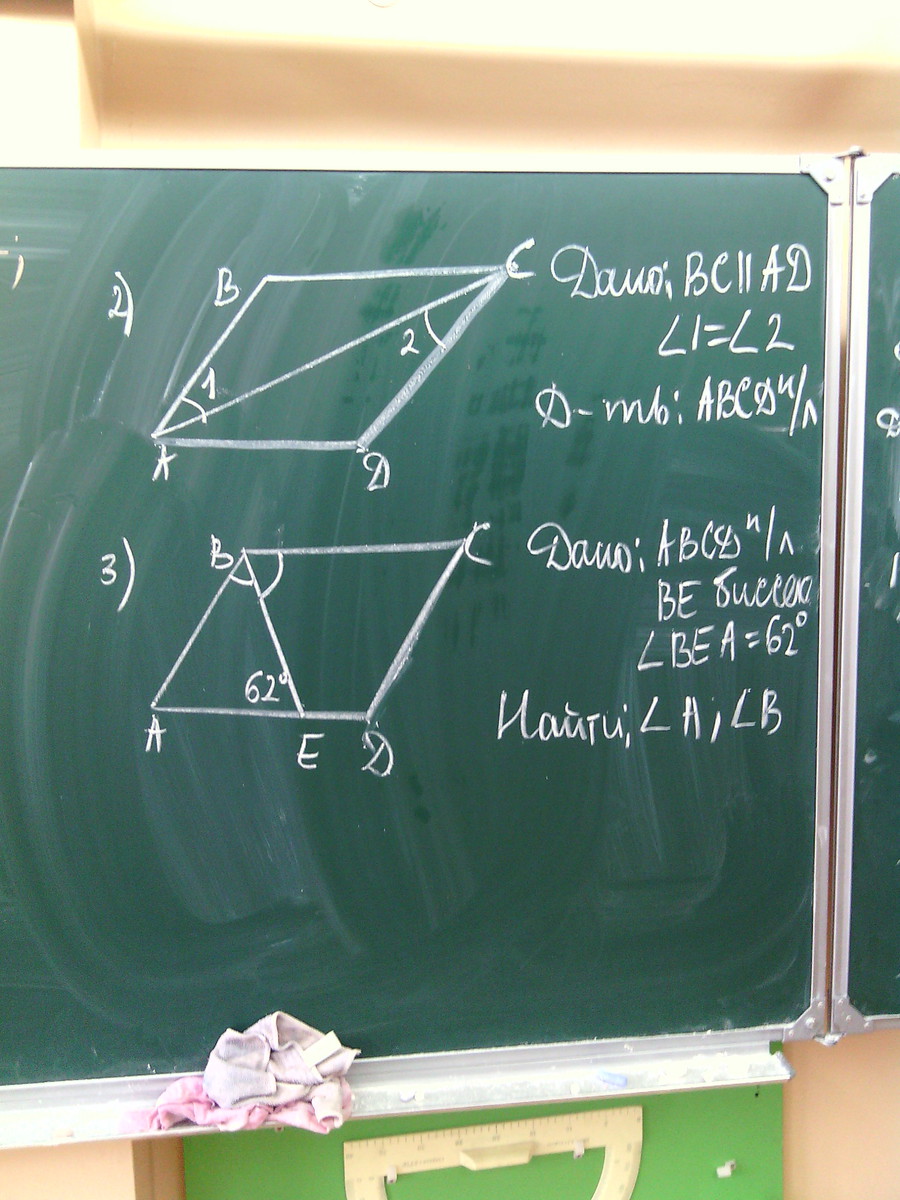 2)
B
C
1
2
A
D
Дано: BC || AD
∠1=∠2
Д-ть: ABCD п/л
3)
B
C
62°
A
E
D
Дано: ABCD п/л
BE биссек
∠BEA=62°
Найти: ∠A, ∠B